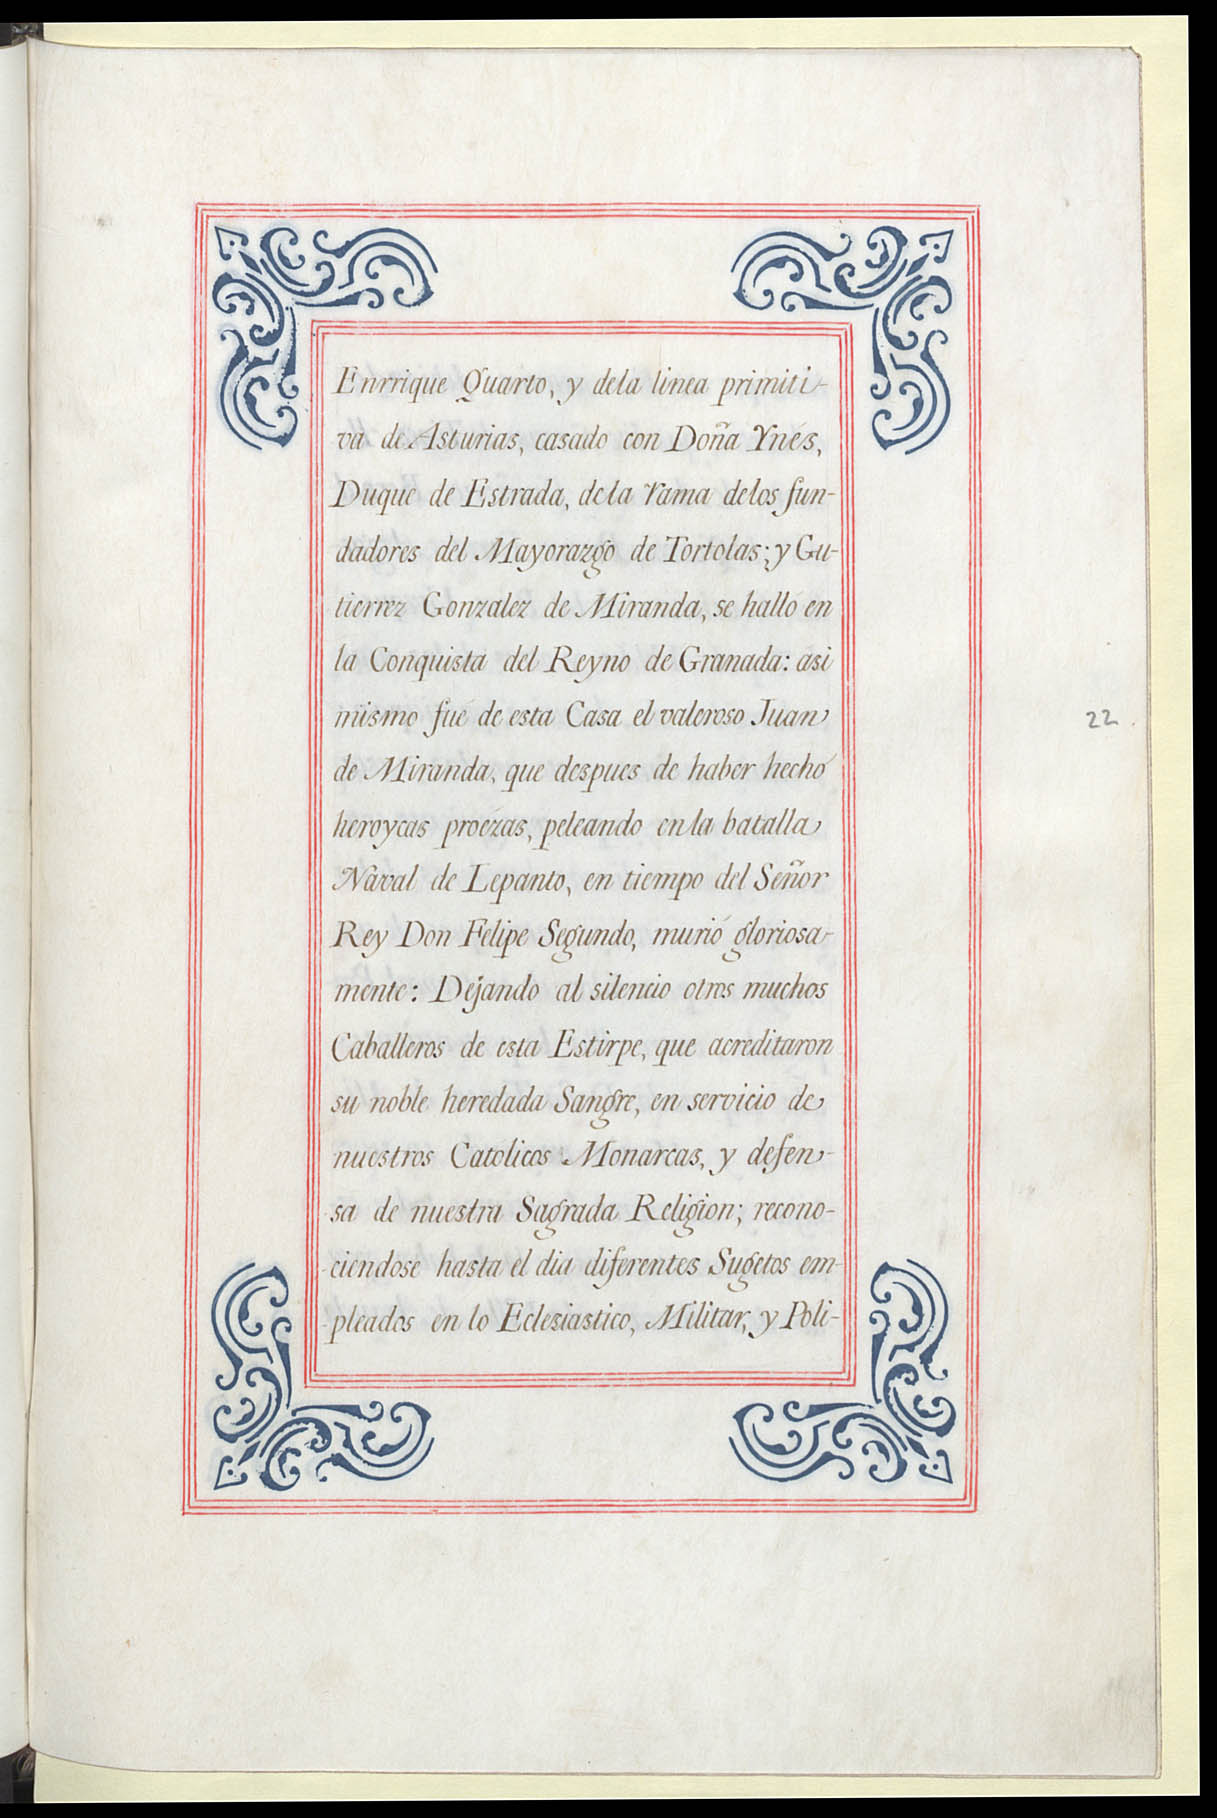 Enrrique Quarto, y dela linea primiti-
va de Asturias, casado con Doña Ynés,
Duque de Estrada, dela rama delos fun-
dadores del Mayorazgo de Tortolas; y Gu-
tierrez Gonzalez de Miranda, se halló en
la Conquista del Reyno de Granada: asi
mismo fué de esta Casa el valeroso Juan
de Miranda, que despues de haber hecho
heroycas proézas, peleando en la batalla
Naval de Lepanto, en tiempo del Señor
Rey Don Felipe Segundo, murió gloriosa-
mente: Dejando al silencio otros muchos
Caballeros de esta Estirpe, que acreditaron
su noble heredada Sangre, en servicio de
nuestros Catolicos Monarcas, y defen-
sa de nuestra Sagrada Religion; recono-
ciendose hasta el dia diferentes Sugetos em-
pleados en lo Eclesiastico, Militar, y Poli-
22